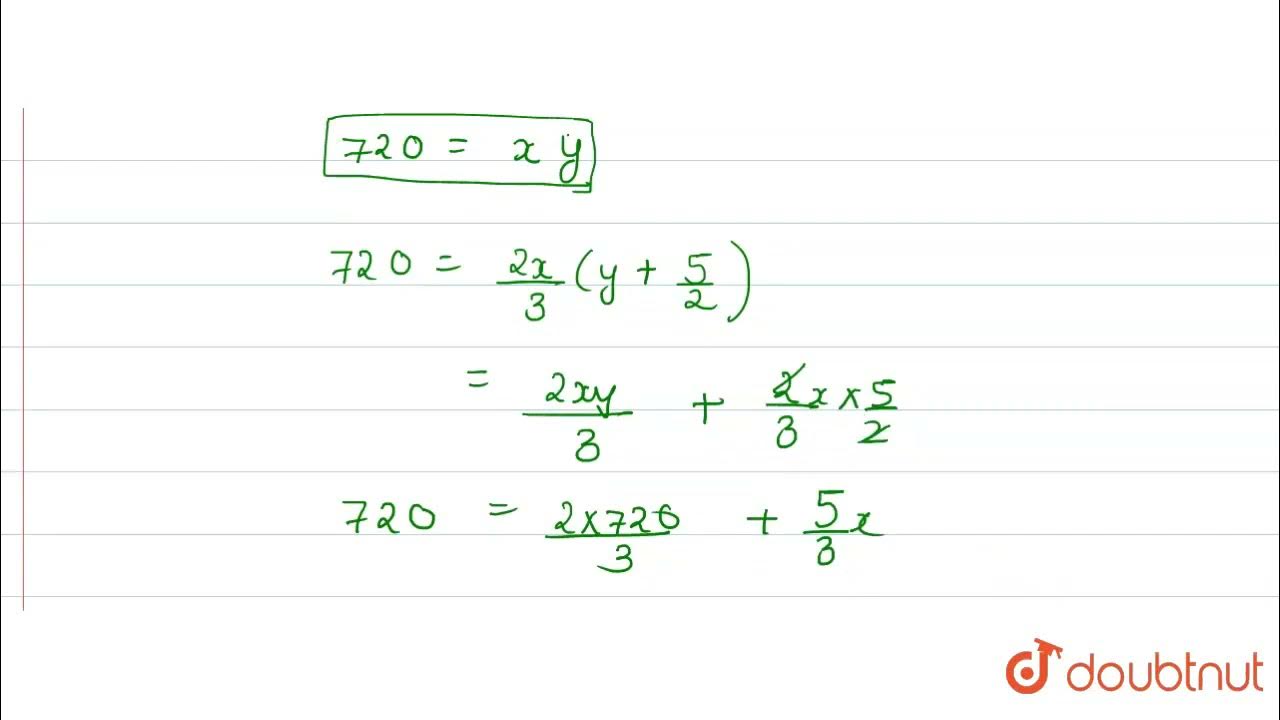 720 = x y
720 = 2x/3 (y + 5/2)
= 2xy/3 + 2x/3 × 5/2
720 = 2×720/3 + 5/3 x
doubtnut